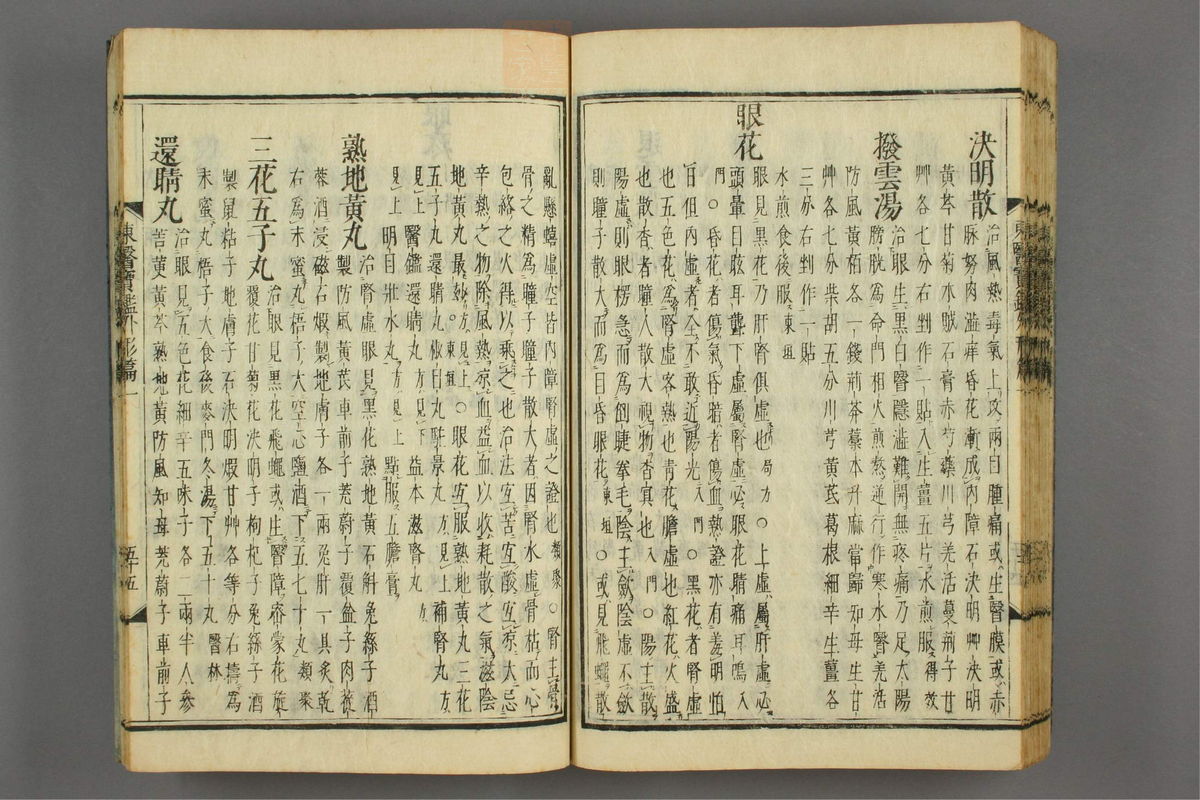 決明散
治風熱毒氣上攻兩目腫痛或生瞖膜或赤
脉努肉澁痒昏花漸成內障石決明艸決明
黃芩甘菊水賊石膏赤芍藥川芎羌活蔓荊子甘
艸各七分右剉作一貼入生薑五片水煎服得效
撥雲湯
治眼生黑白瞖隱澁難開無疼痛乃足太陽
膀胱為命門相火煎熬逆行作寒水瞖羌活
防風黃栢各一錢荊芥藁本升麻當歸知母生甘
艸各七分柴胡五分川芎黃芪葛根細辛生薑各
三分右剉作一貼
水煎食後服東垣
眼花
眼見黑花乃肝腎俱虛也局方○上虛屬肝虛必
頭暈目眩耳聾下虛屬腎虛必眼花睛痛耳鳴入
門○昏花者傷氣昏暗者傷血熱證亦有羞明怕
日但內虛者全不敢近陽光入門○黑花者腎虛
也五色花為腎虛客熱也青花膽虛也紅花火盛
也散杳者瞳人散大視物杳㝠也入門○陽主散
陽虛則眼楞急而為倒睫拳毛陰主斂陰虛不斂
則瞳子散大而為目昏眼花東垣○或見飛蠅散
亂懸蟢虛空皆內障腎虛之證也類聚○腎主骨
骨之精為瞳子瞳子散大者因腎水虛骨枯而心
包絡之火得以乘之也治法宜苦宜酸宜凉大忌
辛熱之物除風熱凉血益血以收耗散之氣滋陰
地黃丸最妙方見上東垣○眼花宜服熟地黃丸三花
五子丸還睛丸椒目白丸駐景丸方見上補腎丸方
見上瞖鑑還睛丸方見下益本滋腎丸方
見上明目壯水丸方見上點服五膽膏
熟地黃丸
治腎虛眼見黑花熟地黃石斛兔絲子酒
製防風黃芪車前子茺蔚子覆盆子肉蓯
蓉酒浸磁石煆製地膚子各一兩兔肝一具炙乾
右為末蜜丸梧子大空心鹽酒下五七十丸類聚
三花五子丸
治眼見黑花飛蠅或生瞖障密蒙花旋
覆花甘菊花決明子枸杞子兔絲子酒
製鼠粘子地膚子石決明煆甘艸各等分右擣為
末蜜丸梧子大食後麥門冬湯下五十丸醫林
還睛丸
治眼見五色花細辛五味子各二兩半人參
苦黃黃芩熟地黃防風知母茺蔚子車前子
東醫寶鑑外形篇一
五十五